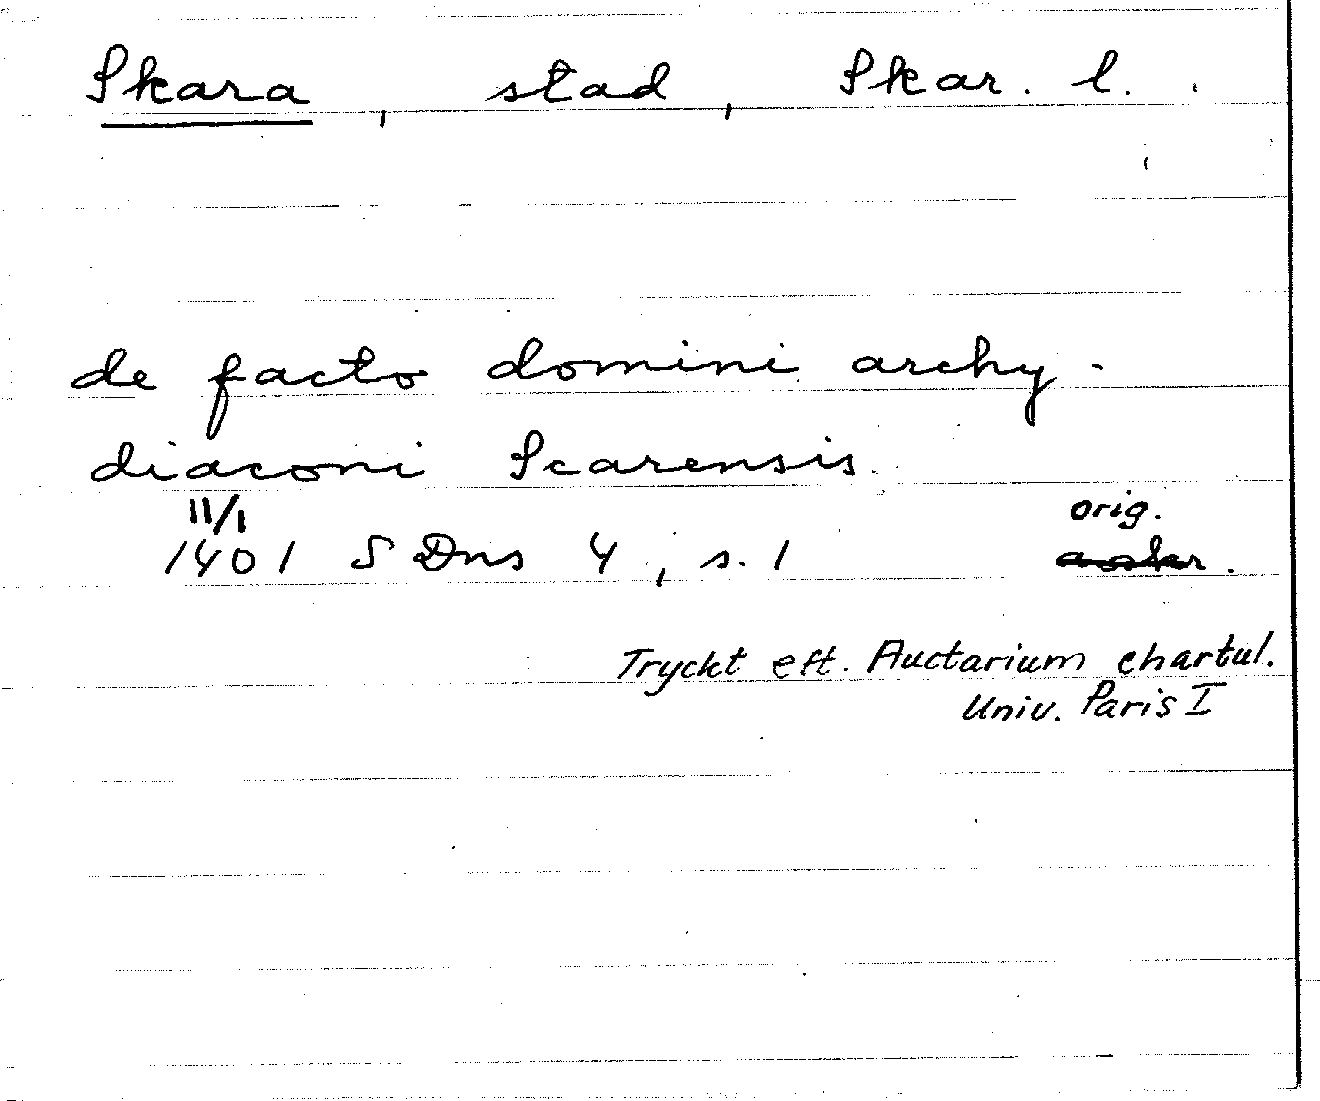 Skara, stad, Skar. l.
de facto domini archy-
diaconi Scarensis
11/1 orig.
1401 SDns 4, s. 1
Tryckt eft. Auctarium chartul.
Univ. Paris I